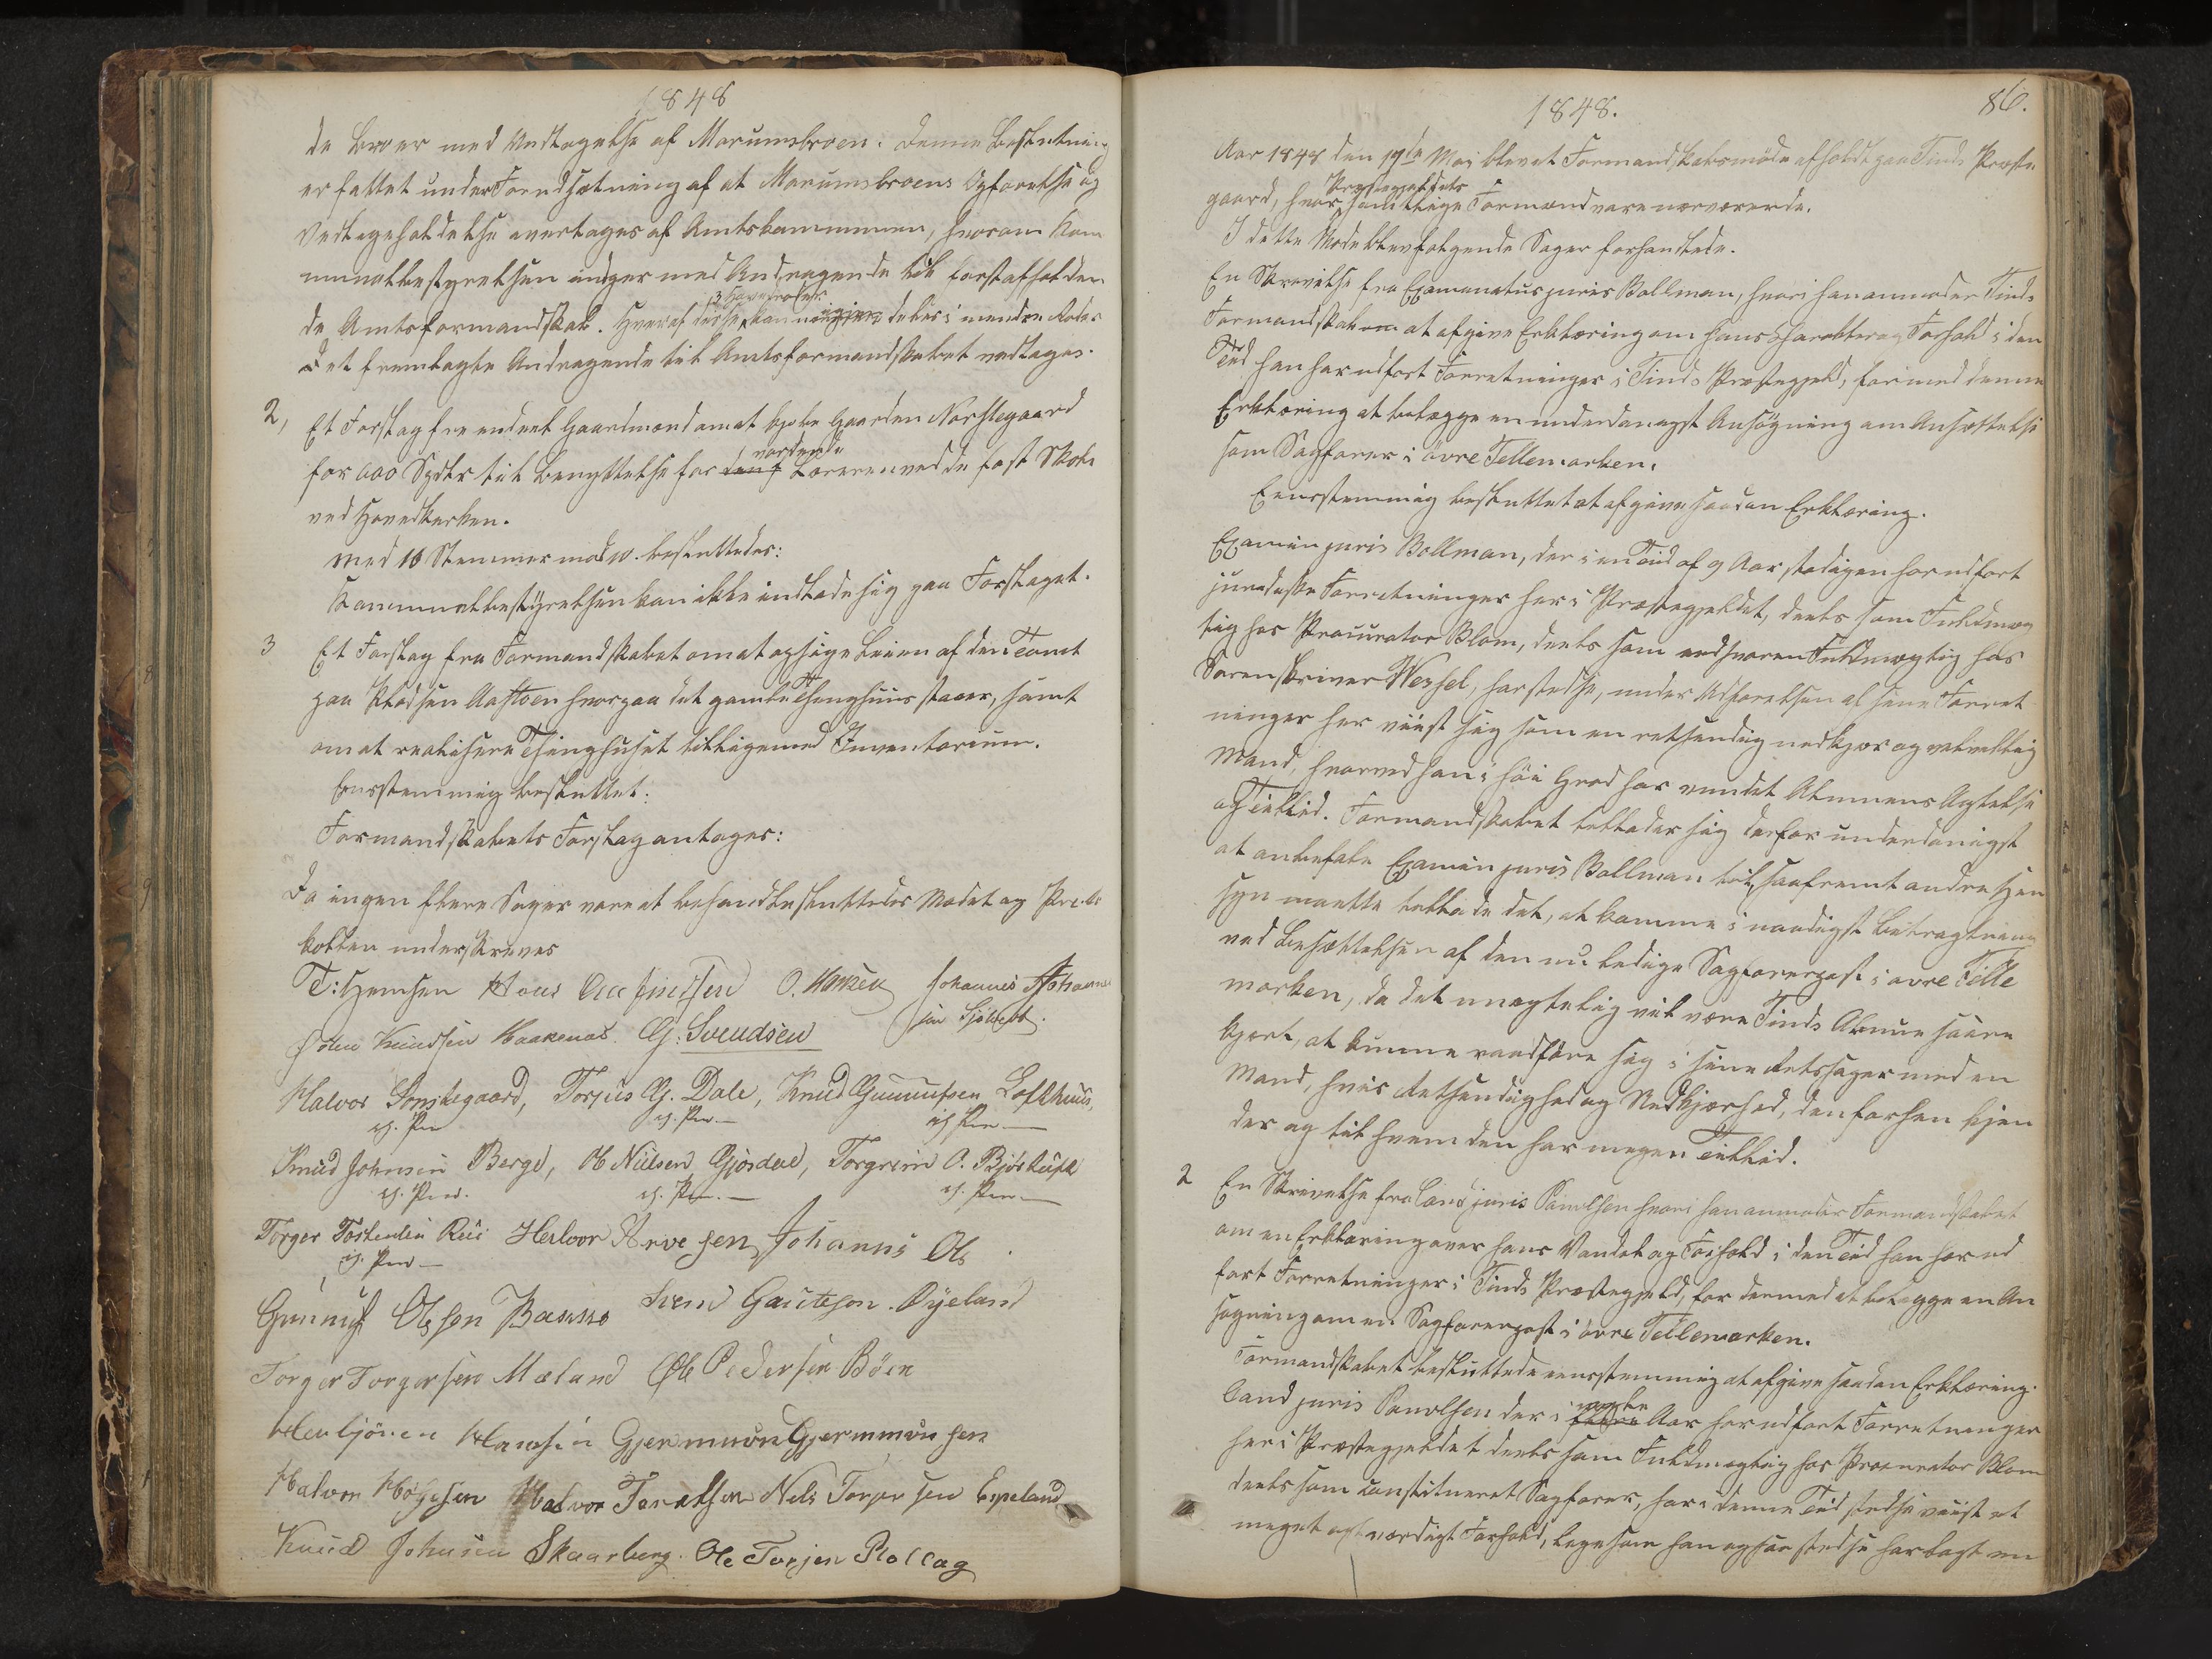 1848
de Broer med Undtagelse af Marumsbroen: Denne Beslutning
er fattet under Forudsætning af at Marumsbroens Opførelse og
Vedligeholdelse overtages af Amtskommunen, hvorom Kom
munalbestyrelsen indger med Andragende til forstatholden
de Amtsformandskab. Hveraf disse 3 Hovedroder kan igjen deles i mindre Roder
Det fremlagte Andragende til Amtsformandskabet vedtages.
2, Et Forslag fra endeel Gaardmænd om at kjøbe Gaarden Norstegaard
for 600 Spdlr til Benyttelse for vordende Læreren ved de fast Skole
ved Hovedkirken.
Med 16 Stemmer mod 10. besluttedes:
Kommunalbestyrelsen kan ikke indlade sig paa Forslaget.
3 Et Forslag fra Formandskabet om at opsige Leien af den Tomt
paa Pladsen Aasloen hvorpaa det gamle Thinghuus staaer, samt
om at realisere Thinghuset tilligemed Inventarium.
Eensstemmig besluttet:
Formandskabets Forslag antages:
Da ingen flere Sager vare at behandle sluttedes Mødet og Proto
kollen underskreves
T: Hemsen Hans Aasfinssen O. Hansen Johannes Johanne
John Knudsen Haakenæs. G: Svendsen sen Sjøtveit.
Halvor Sønstegaard, Torjus G. Dale, Knud Gunnufsen Lofthuus,
m. Pen m. Pen m. Pen
Knud Johnsen Berge, Ol Nielsen Gjøsdal, Torgrim O. Bjørtuft
m. Pen. m. Pen. m. Pen
Torger Torstensen Rui Halvor Arvesen Johannes Ols
m. Pen
Gunnuf Olssen Bamse Svend Gautesen. Øyeland
Torger Torgersen Mæland Ole Pedersen Bøen
Herbjørn Hansen Gjermun Gjermunsen
Halvor Høljesen Halvor Tarielsen Nils Torjersen Espeland
Knud Johnsen Skaarberg. Ole Torjen Rollag
1848.
86.
Aar 1848 den 19de Mai blev et Formandskabsmøde afholdt paa Tinds Præste
gaard, hvor Præstegjeldets samtlige Formænd vare nærværende.
I dette Møde blev følgende Sager forhandlede.
En Skrivelse fra Examinatus juris Bollman, hvori han anmoder Tinds
Formandskab om at afgive Erklæring om hans Charakter og Forhold i den
Tid han har udført Forretninger i Tinds Præstegjeld, for med denne
Erklæring at belægge en underdanigst Ansøgning om Ansættelse
som Sagfører i øvre Tellemarken.
Eensstemmig besluttet at afgive saadan Erklæring.
Examin juris Bollman, der i en Tid af 9 Aar stadigen har udført
juridiske Forretninger her i Præstegjeldet, deels som Fuldmæg
tig hos Procurator Blom, deels som edsvoren Fuldmægtig hos
Sorenskriver Wessel, har stedse, under Udførelsen af sine Forret
ninger her viist sig som en retsindig nedkjær og velvillig
Mand, hvorved han i høi Grad har vundet Almuens Agtelse
og Tillid. Formandskabet tillader sig derfor underdanigst
at anbefale Examin juris Bollman til, saafremt andre Hen
syn maatte tillade det, at komme i naadigst Betragtning
ved Besættelsen af den nu ledige Sagførerpost i øvre Telle
marken, da det unægtelig vil være Tinds Almue saare
kjært, at kunne raadføre sig i sine Retssager med en
Mand, hvis Retsindighed og Nedkjærhed, den forhen kjen
der og til hvem den har megen Tillid.
2 En Skrivelse fra Cand juris Paulsen hvori han anmoder Formandskabet
om en Erklæring over hans Vandel og Forhold i den Tid han har ud
ført Forretninger i Tinds Præstegjeld, for dermed at belægge en An
søgning om en Sagførerpost i øvre Tellemarken.
Formandskabet besluttede eensstemmig at afgive saadan Erklæring.
Cand juris Paulsen der i nogle Aar har udført Forretninger
her i Præstegjeldet deels som Fuldmægtig hos Procurator Blom
deels som constitueret Sagfører, har i denne Tid stedse viist et
meget agtværdigt Forhold, ligesom han ogsaa stedse har lagt en